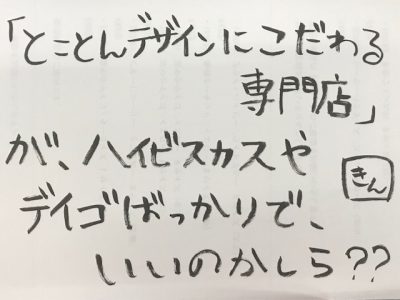 「とことんデザインにこだわる
専門店」
が、ハイビスカスや
デイゴばっかりで、
いいのかしら??
きん